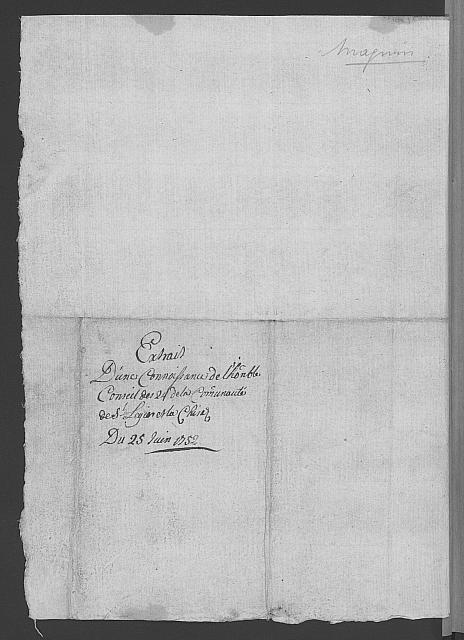 Magnin
Extrait
D'une Connoissance de l'honble
Conseil des 24 de la Comunauté
de St Legier et la Chiesaz
Du 25 Juin 1752